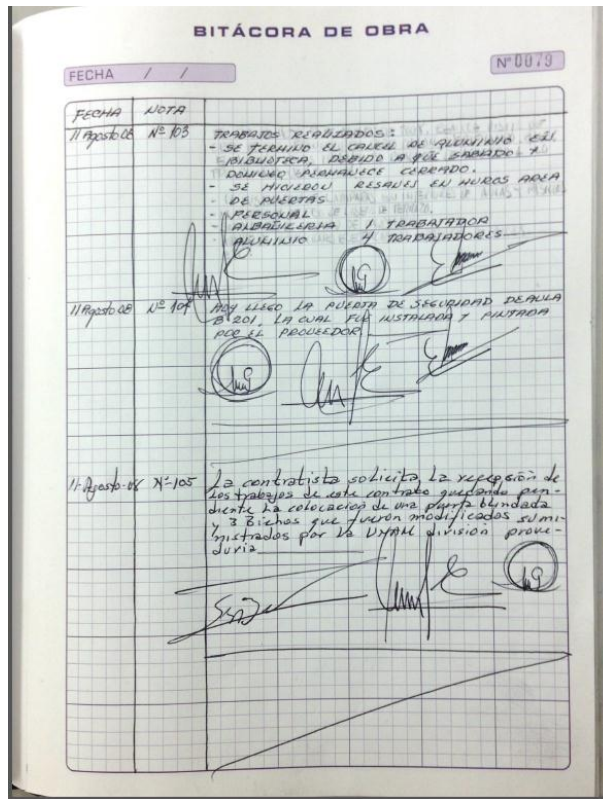 BITÁCORA DE OBRA
FECHA / /
Nº 0079
FECHA NOTA
11 Agosto 08 Nº 103 TRABAJOS REALIZADOS:
- SE TERMINO EL CANCEL DE ALUMINIO EN
BIBLIOTECA, DEBIDO A QUE SABADO Y
DOMINGO PERMANECE CERRADO.
- SE HICIERON RESANES EN MUROS AREA
- DE PUERTAS
- PERSONAL
- ALBAÑILERIA 1 TRABAJADOR
- ALUMINIO 4 TRABAJADORES
11 Agosto 08 Nº 104 HOY LLEGO LA PUERTA DE SEGURIDAD DE AULA
B 201, LA CUAL FUE INSTALADA Y PINTADA
POR EL PROVEEDOR
11-Agosto-08 Nº-105 La contratista solicita, La recepsión de
Los trabajos de este contrato quedando pen-
diente La colocación de una puerta blindada
y 3 que fueron modificadas sumi-
nistrados por La UNAM división provee-
duria